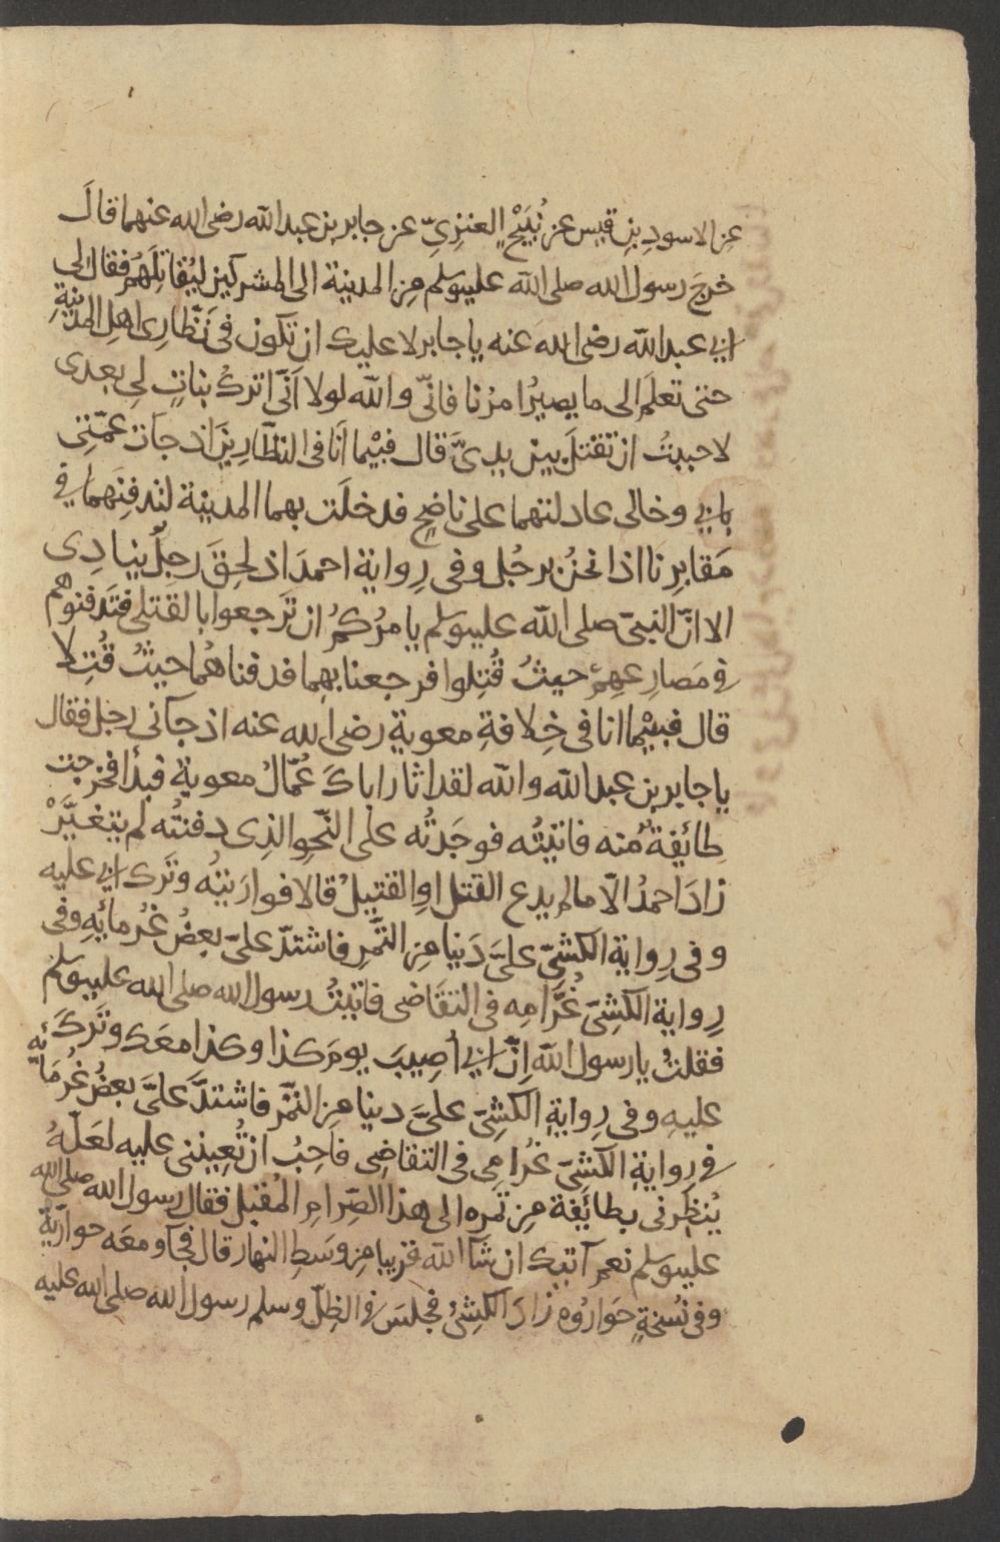 عن الاسود بن قيس عن نُبَيْحٍ العنزيّ عن جابر بن عبد الله رضى الله عنهما قالَ
خرج رسول الله صلى الله عليه وسلم من المدينة الى المشركين ليُقاتِلَهُم فقال لى
ابى عبد الله رضى الله عنه يا جابر لا عليك ان تكون فى نَظّارِى اهل المدينةِ
حتى تعلَم الى ما يصيرُ امرُنا فانّى والله لولا اَنّى اتركُ بناتٍ لى بعدى
لاحببتُ ان تقتلَ بين يدىَّ قال فبَيْما اَنا فى النظّارِينَ اذ جآت عمّتِى
بابى وخالى عادلتهما على ناضِحٍ فدخلَت بهما المدينة لتدفِنَهما فى
مَقابِرِنا اذا نحنُ برجُل وفى رِواية احمدَ اذ لحِقَ رجلٌ ينادِى
الا انّ النبىّ صلى الله عليه وسلم يامرُكُم ان تَرجعوا بالقتلى فتدفنوهم
فى مَصارِعِهِم حيثُ قُتِلوا فرجعنا بهما فدفناهُما حيثُ قُتِلا
قال فبيْما انا فى خِلافةِ معوية رضى الله عنه اذ جآنى رجل فقال
يا جابر بن عبد الله والله لقد اثار اباكَ عُمّالُ معوية فبدا فخرجت
طائِفةٌ منه فاتيتُه فوجَدتُه على النّحوِ الذِى دفنتُه لم يتغيَّرْ
زادَ احمدُ الّا ما لم يدع القتل اوِ القتِيلُ قالا فواريتُه وتَرك ابى عليه
وفى رِوايةِ الكشِىّ علىَّ دَينا مِن التّمرِ فاشتدّ علىّ بعضُ غُرمائِهِ وفى
رِوايةِ الكشِىّ غُرَّامِه فى التقَاضى فاتيتُ رسول الله صلى الله عليه وسلم
فقلتُ يا رسول الله اِنّ ابى اُصِيبَ يومَ كذا وكذا معَك وتَركَ
عليهِ وفى رِوايةِ الكشِىّ علىَّ دينا مِن التّمر فاشتدَّ علىَّ بعضُ غُرمَائِه
فى رِوايةِ الكشىّ غُرّامِى فى التقاضِى فاحِبُ ان تُعِيننى عليه لعَلّهُ
يُنظِرنى بطائِفة مِن تمره الى هذا الصّرامِ المُقبل فقال رسول الله صلى الله
عليه وسلم نعم آتيك ان شآ الله قريبا مِن وسَطِ النهار قال فجآ ومعَه حوارّيه
وفى نُسخةٍ حَوارُوه زادَ الكشِىُّ فجلسَ فى الظِلّ وسلم رسول الله صلى الله عليه